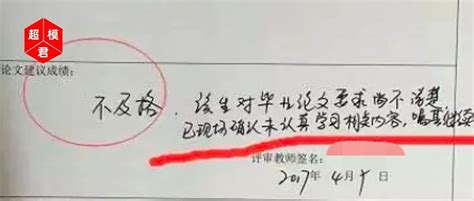 超模君
论文建议成绩：
不及格，该生对毕业论文要求尚不清楚
已现场确认未认真学习相关内容，嘱其继续
评审教师签名：
2017年 4月 5日